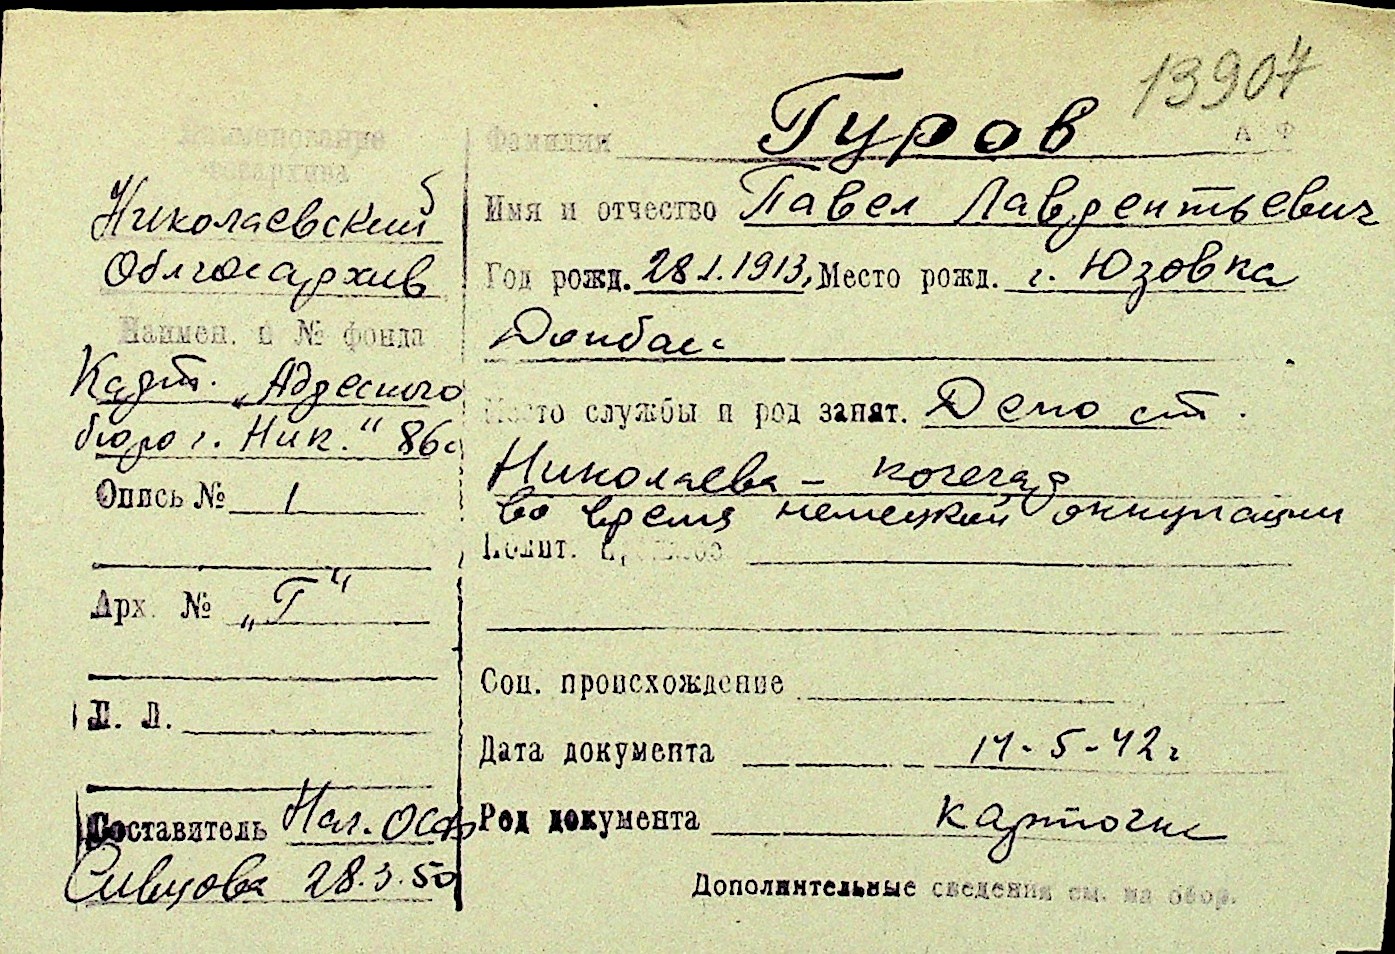 13907
Наименование
госархива
Николаевский
Облгосархив
Наимен. и № фонда
Карт. „Адресного
бюро г. Ник.“ 86с
Опись № 1
Арх. № „Г“
Л. Л.
Составитель Нач. ОСФ
Сивцова 28.3.50
Фамилия Гуров
А Ф
Имя и отчество Павел Лаврентьевич
Год рожд. 28.1.1913, Место рожд. г. Юзовка
Донбасс
Место службы и род занят. Депо ст.
Николаева – кочегар
во время немецкой оккупации
Полит.
Соц. происхождение
Дата документа 14-5-42г
Род документа карточка
Дополнительные сведения см. на обор.